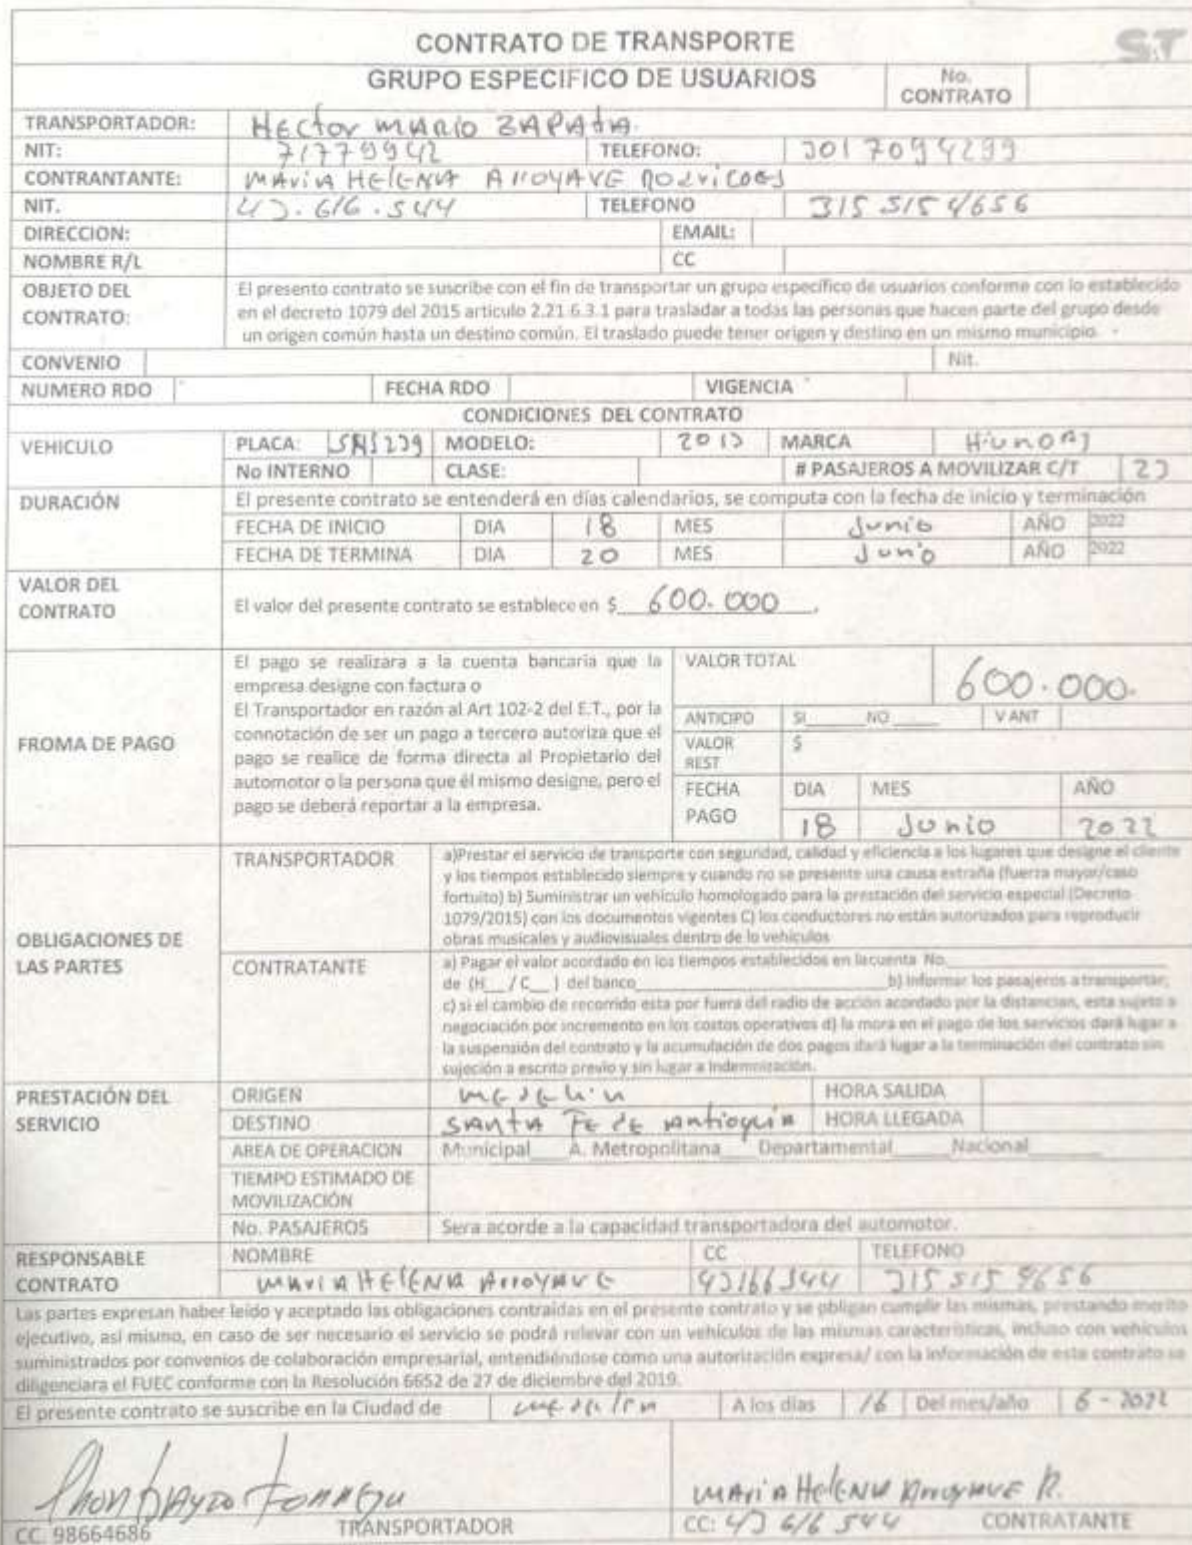 CONTRATO DE TRANSPORTE
ST
GRUPO ESPECIFICO DE USUARIOS
No. CONTRATO
TRANSPORTADOR: HECtor MARIO ZAPAtA.
NIT: 71779942 TELEFONO: 3017094299
CONTRANTANTE: MAViA HElENA ArroYAVE
NIT. 43.616.544 TELEFONO 315 515 4656
DIRECCION: EMAIL:
NOMBRE R/L CC
OBJETO DEL CONTRATO:
El presento contrato se suscribe con el fin de transportar un grupo específico de usuarios conforme con lo establecido
en el decreto 1079 del 2015 articulo 2.21.6.3.1 para trasladar a todas las personas que hacen parte del grupo desde
un origen común hasta un destino común. El traslado puede tener origen y destino en un mismo municipio.
CONVENIO Nit.
NUMERO RDO FECHA RDO VIGENCIA
CONDICIONES DEL CONTRATO
VEHICULO PLACA: MODELO: 2013 MARCA
No INTERNO CLASE: # PASAJEROS A MOVILIZAR C/T 23
DURACIÓN El presente contrato se entenderá en días calendarios, se computa con la fecha de inicio y terminación
FECHA DE INICIO DIA 18 MES Junio AÑO 2022
FECHA DE TERMINA DIA 20 MES Junio AÑO 2022
VALOR DEL CONTRATO
El valor del presente contrato se establece en $ 600.000
FROMA DE PAGO
El pago se realizara a la cuenta bancaria que la
empresa designe con factura o
El Transportador en razón al Art 102-2 del E.T., por la
connotación de ser un pago a tercero autoriza que el
pago se realice de forma directa al Propietario del
automotor o la persona que él mismo designe, pero el
pago se deberá reportar a la empresa.
VALOR TOTAL 600.000.
ANTICIPO SI NO V ANT
VALOR REST $
FECHA PAGO DIA MES AÑO
18 Junio 2022
OBLIGACIONES DE LAS PARTES
TRANSPORTADOR
a)Prestar el servicio de transporte con seguridad, calidad y eficiencia a los lugares que designe el cliente
y los tiempos establecido siempre y cuando no se presente una causa extraña (fuerza mayor/caso
fortuito) b) Suministrar un vehículo homologado para la prestación del servicio especial (Decreto
1079/2015) con los documentos vigentes C) los conductores no están autorizados para reproducir
obras musicales y audiovisuales dentro de lo vehículos
CONTRATANTE
a) Pagar el valor acordado en los tiempos establecidos en lacuenta No.
de (H__/C__) del banco b) Informar los pasajeros a transportar;
c) si el cambio de recorrido esta por fuera del radio de acción acordado por la distancian, esta sujeto a
negociación por incremento en los costos operativos d) la mora en el pago de los servicios dará lugar a
la suspensión del contrato y la acumulación de dos pagos dará lugar a la terminación del contrato sin
sujeción a escrito previo y sin lugar a indemnización.
PRESTACIÓN DEL SERVICIO
ORIGEN Medellin HORA SALIDA
DESTINO SANtA FE dE Antioquia HORA LLEGADA
AREA DE OPERACION Municipal A. Metropolitana Departamental Nacional
TIEMPO ESTIMADO DE MOVILIZACIÓN
No. PASAJEROS Sera acorde a la capacidad transportadora del automotor.
RESPONSABLE CONTRATO
NOMBRE CC TELEFONO
MAViA HElENA ArroYAVE 43166544 315 515 4656
Las partes expresan haber leído y aceptado las obligaciones contraídas en el presente contrato y se obligan cumplir las mismas, prestando merito
ejecutivo, así mismo, en caso de ser necesario el servicio se podrá relevar con un vehículos de las mismas características, incluso con vehículos
suministrados por convenios de colaboración empresarial, entendiéndose como una autorización expresa/ con la información de este contrato se
diligenciara el FUEC conforme con la Resolución 6652 de 27 de diciembre del 2019.
El presente contrato se suscribe en la Ciudad de Medellin A los días 16 Del mes/año 6 - 2022
MAriA HelENA ArroyAVE R.
CC. 98664686 TRANSPORTADOR CC: 43 616 544 CONTRATANTE